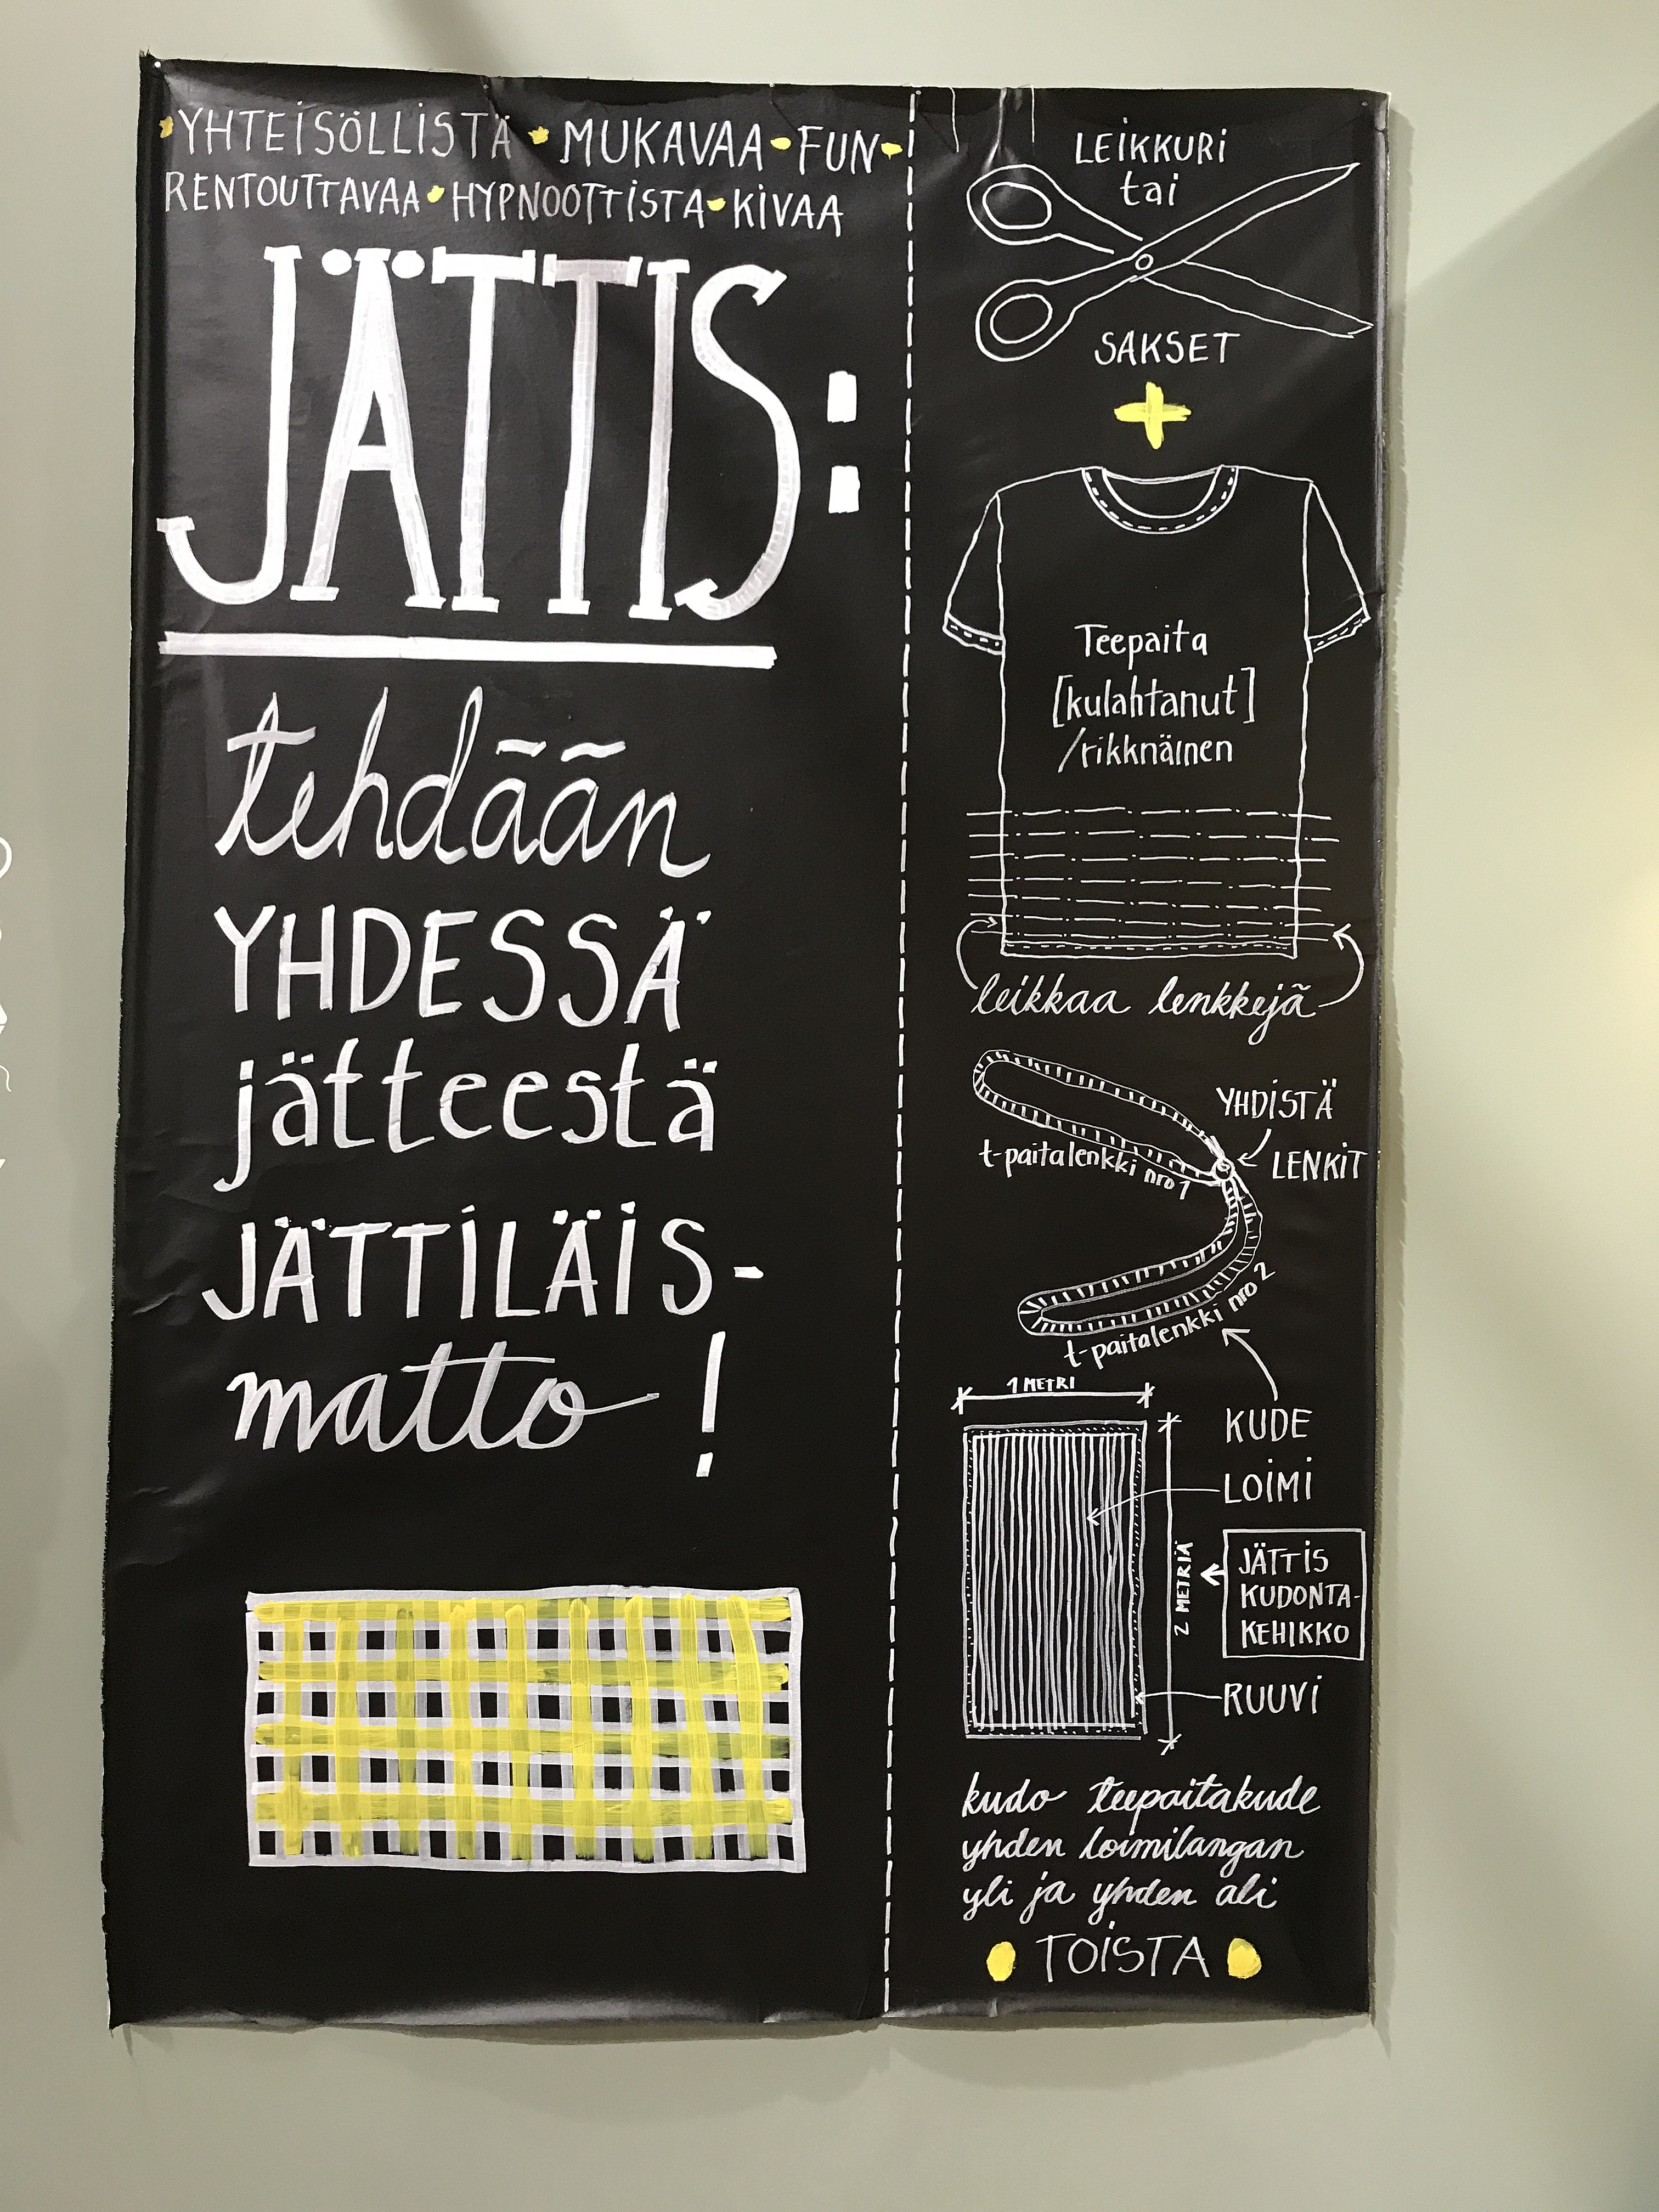 YHTEISÖLLISTÄ • MUKAVAA • FUN •
RENTOUTTAVAA • HYPNOOTTISTA • KIVAA
JÄTTIS:
tehdään
YHDESSÄ
jätteestä
JÄTTILÄIS-
matto!
LEIKKURI
tai
SAKSET
+
Teepaita
[kulahtanut]
/rikknäinen
leikkaa lenkkejä
YHDISTÄ
LENKIT
t-paitalenkki nro 1
t-paitalenkki nro 2
1 METRI
KUDE
LOIMI
2 METRIÄ
JÄTTIS
KUDONTA-
KEHIKKO
RUUVI
kudo teepaitakude
yhden loimilangan
yli ja yhden ali
• TOISTA •